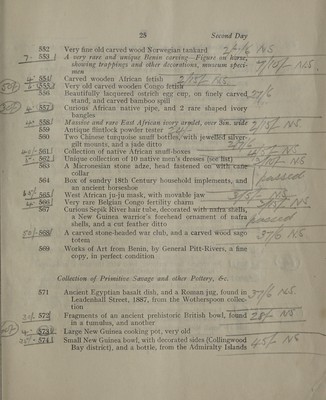 28 Second Day
552 Very fine old carved wood Norwegian tankard
553 A very rare and unique Benin carving—Figure on horse,
showing trappings and other decorations, museum speci-
men
554 Carved wooden African fetish
555 Very old carved wooden Congo fetish
556 Beautifully lacquered ostrich egg cup, on finely carved
stand, and carved bamboo spill
557 Curious African native pipe, and 2 rare shaped ivory
bangles
558 Massive and rare East African ivory armlet, over 5in. wide
559 Antique flintlock powder tester
560 Two Chinese turquoise snuff bottles, with jewelled silver-
gilt mounts, and a jade ditto
561 Collection of native African snuff-boxes
562 Unique collection of 10 native men's dresses (see list)
563 A Micronesian stone adze, head fastened on with cane
collar
564 Box of sundry 18th Century household implements, and
an ancient horseshoe
passed
565 West African ju-ju mask, with movable jaw
566 Very rare Belgian Congo fertility charm
567 Curious Sepik River hair tube, decorated with nafra shells,
a New Guinea warrior's forehead ornament of nafra
shells, and a cut feather ditto
passed
568 A carved stone-headed war club, and a carved wood sago
totem
37/6 NS
569 Works of Art from Benin, by General Pitt-Rivers, a fine
copy, in perfect condition
Collection of Primitive Savage and other Pottery, &c.
571 Ancient Egyptian basalt dish, and a Roman jug, found in
Leadenhall Street, 1887, from the Wotherspoon collec-
tion
37/6 NS
572 Fragments of an ancient prehistoric British bowl, found
in a tumulus, and another
NS
573 Large New Guinea cooking pot, very old
574 Small New Guinea bowl, with decorated sides (Collingwood
Bay district), and a bottle, from the Admiralty Islands
45/- NS